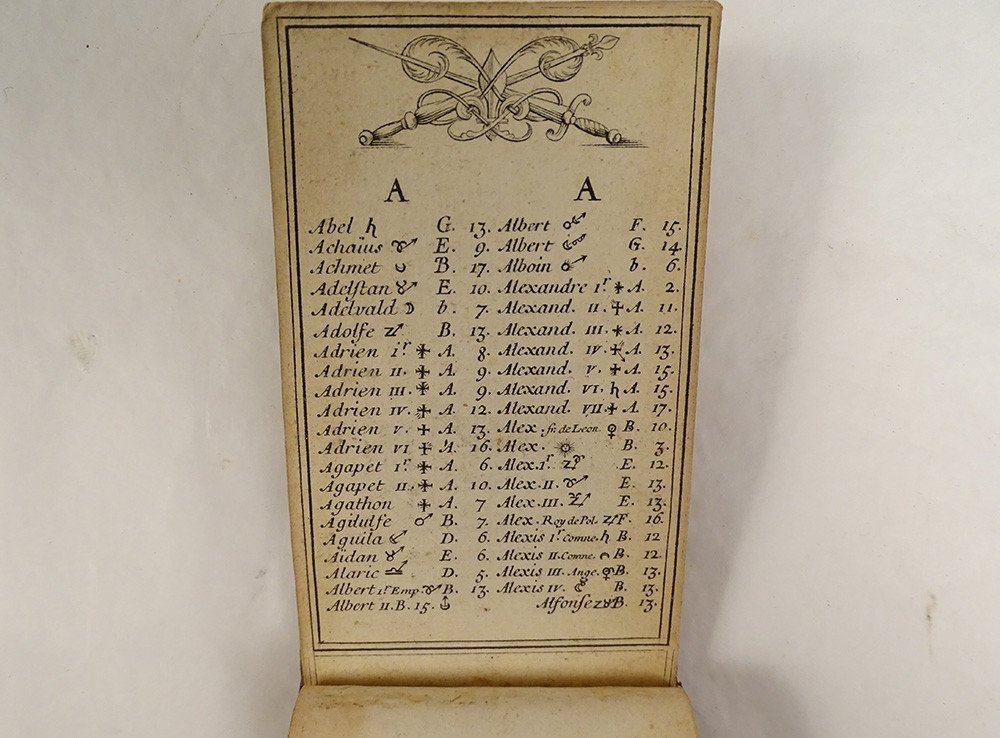 A
Abel ♄ G. 13.
Achaïus ♈ E. 9.
Achmet B. 17.
Adelstan ♉ E. 10.
Adelvald ☽ b. 7.
Adolfe B. 13.
Adrien Iʳ ✠ A. 8.
Adrien II. ✠ A. 9.
Adrien III. ✠ A. 9.
Adrien IV. ✠ A. 12.
Adrien V. ✠ A. 13.
Adrien VI ✠ A. 16.
Agapet Iʳ ✠ A. 6.
Agapet II. ✠ A. 10.
Agathon ✠ A. 7
Agilulfe ♂ B. 7.
Aquila D. 6.
Aïdan ♉ E. 6.
Alaric ♎ D. 5.
Albert Iʳ Emp. ♈ B. 13.
Albert II. B. 15.
A
Albert ♂ F. 15.
Albert G. 14.
Alboin b. 6.
Alexandre Iʳ ✠ A. 2.
Alexand. II. ✠ A. 11.
Alexand. III. ✠ A. 12.
Alexand. IV. ✠ A. 13.
Alexand. V. ✠ A. 15.
Alexand. VI. ♄ A. 15.
Alexand. VII ✠ A. 17.
Alex. fr. de Leon ♀ B. 10.
Alex. ☼ B. 3.
Alex. Iʳ E. 12.
Alex. II. ♈ E. 13.
Alex. III. E. 13.
Alex. Roy de Pol. F. 16.
Alexis Iʳ Comne. ♄ B. 12
Alexis II. Comne. B. 12.
Alexis III. Ange. ♀ B. 13.
Alexis IV. B. 13.
Alfonse B. 13.